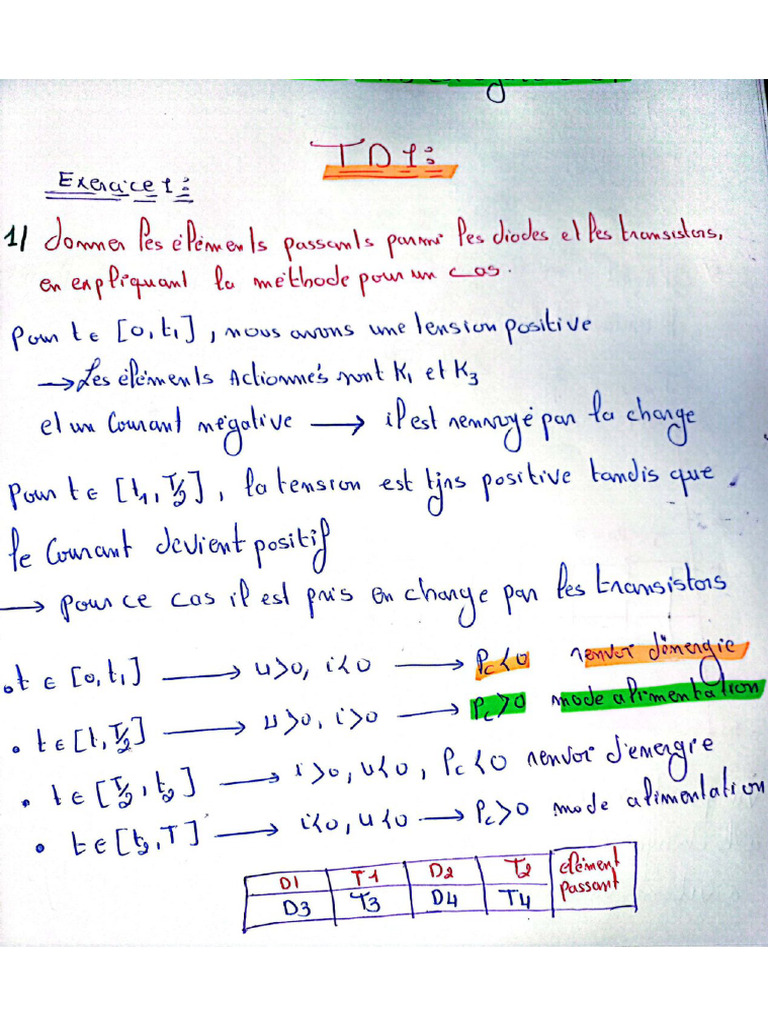 TD1:
Exercice 1:
1/ donner les éléments passants parmi les diodes et les transistors,
en expliquant la méthode pour un cas.
Pour t ∈ [0, t₁], nous avons une tension positive
→ Les éléments Actionnés sont K₁ et K₃
et un Courant négative → il est renvoyé par la charge
Pour t ∈ [t₁, T/2], la tension est tjrs positive tandis que
le Courant devient positif
→ pour ce cas il est pris en charge par les transistors
• t ∈ [0, t₁] → u>0, i<0 → Pc<0 renvoi d'énergie
• t ∈ [t, T/2] → u>0, i>0 → Pc>0 mode alimentation
• t ∈ [T/2, t₂] → i>0, u<0, Pc<0 renvoi d'énergie
• t ∈ [t₂, T] → i<0, u<0 → Pc>0 mode alimentation
D1 T1 D2 T2 élément
D3 T3 D4 T4 passant